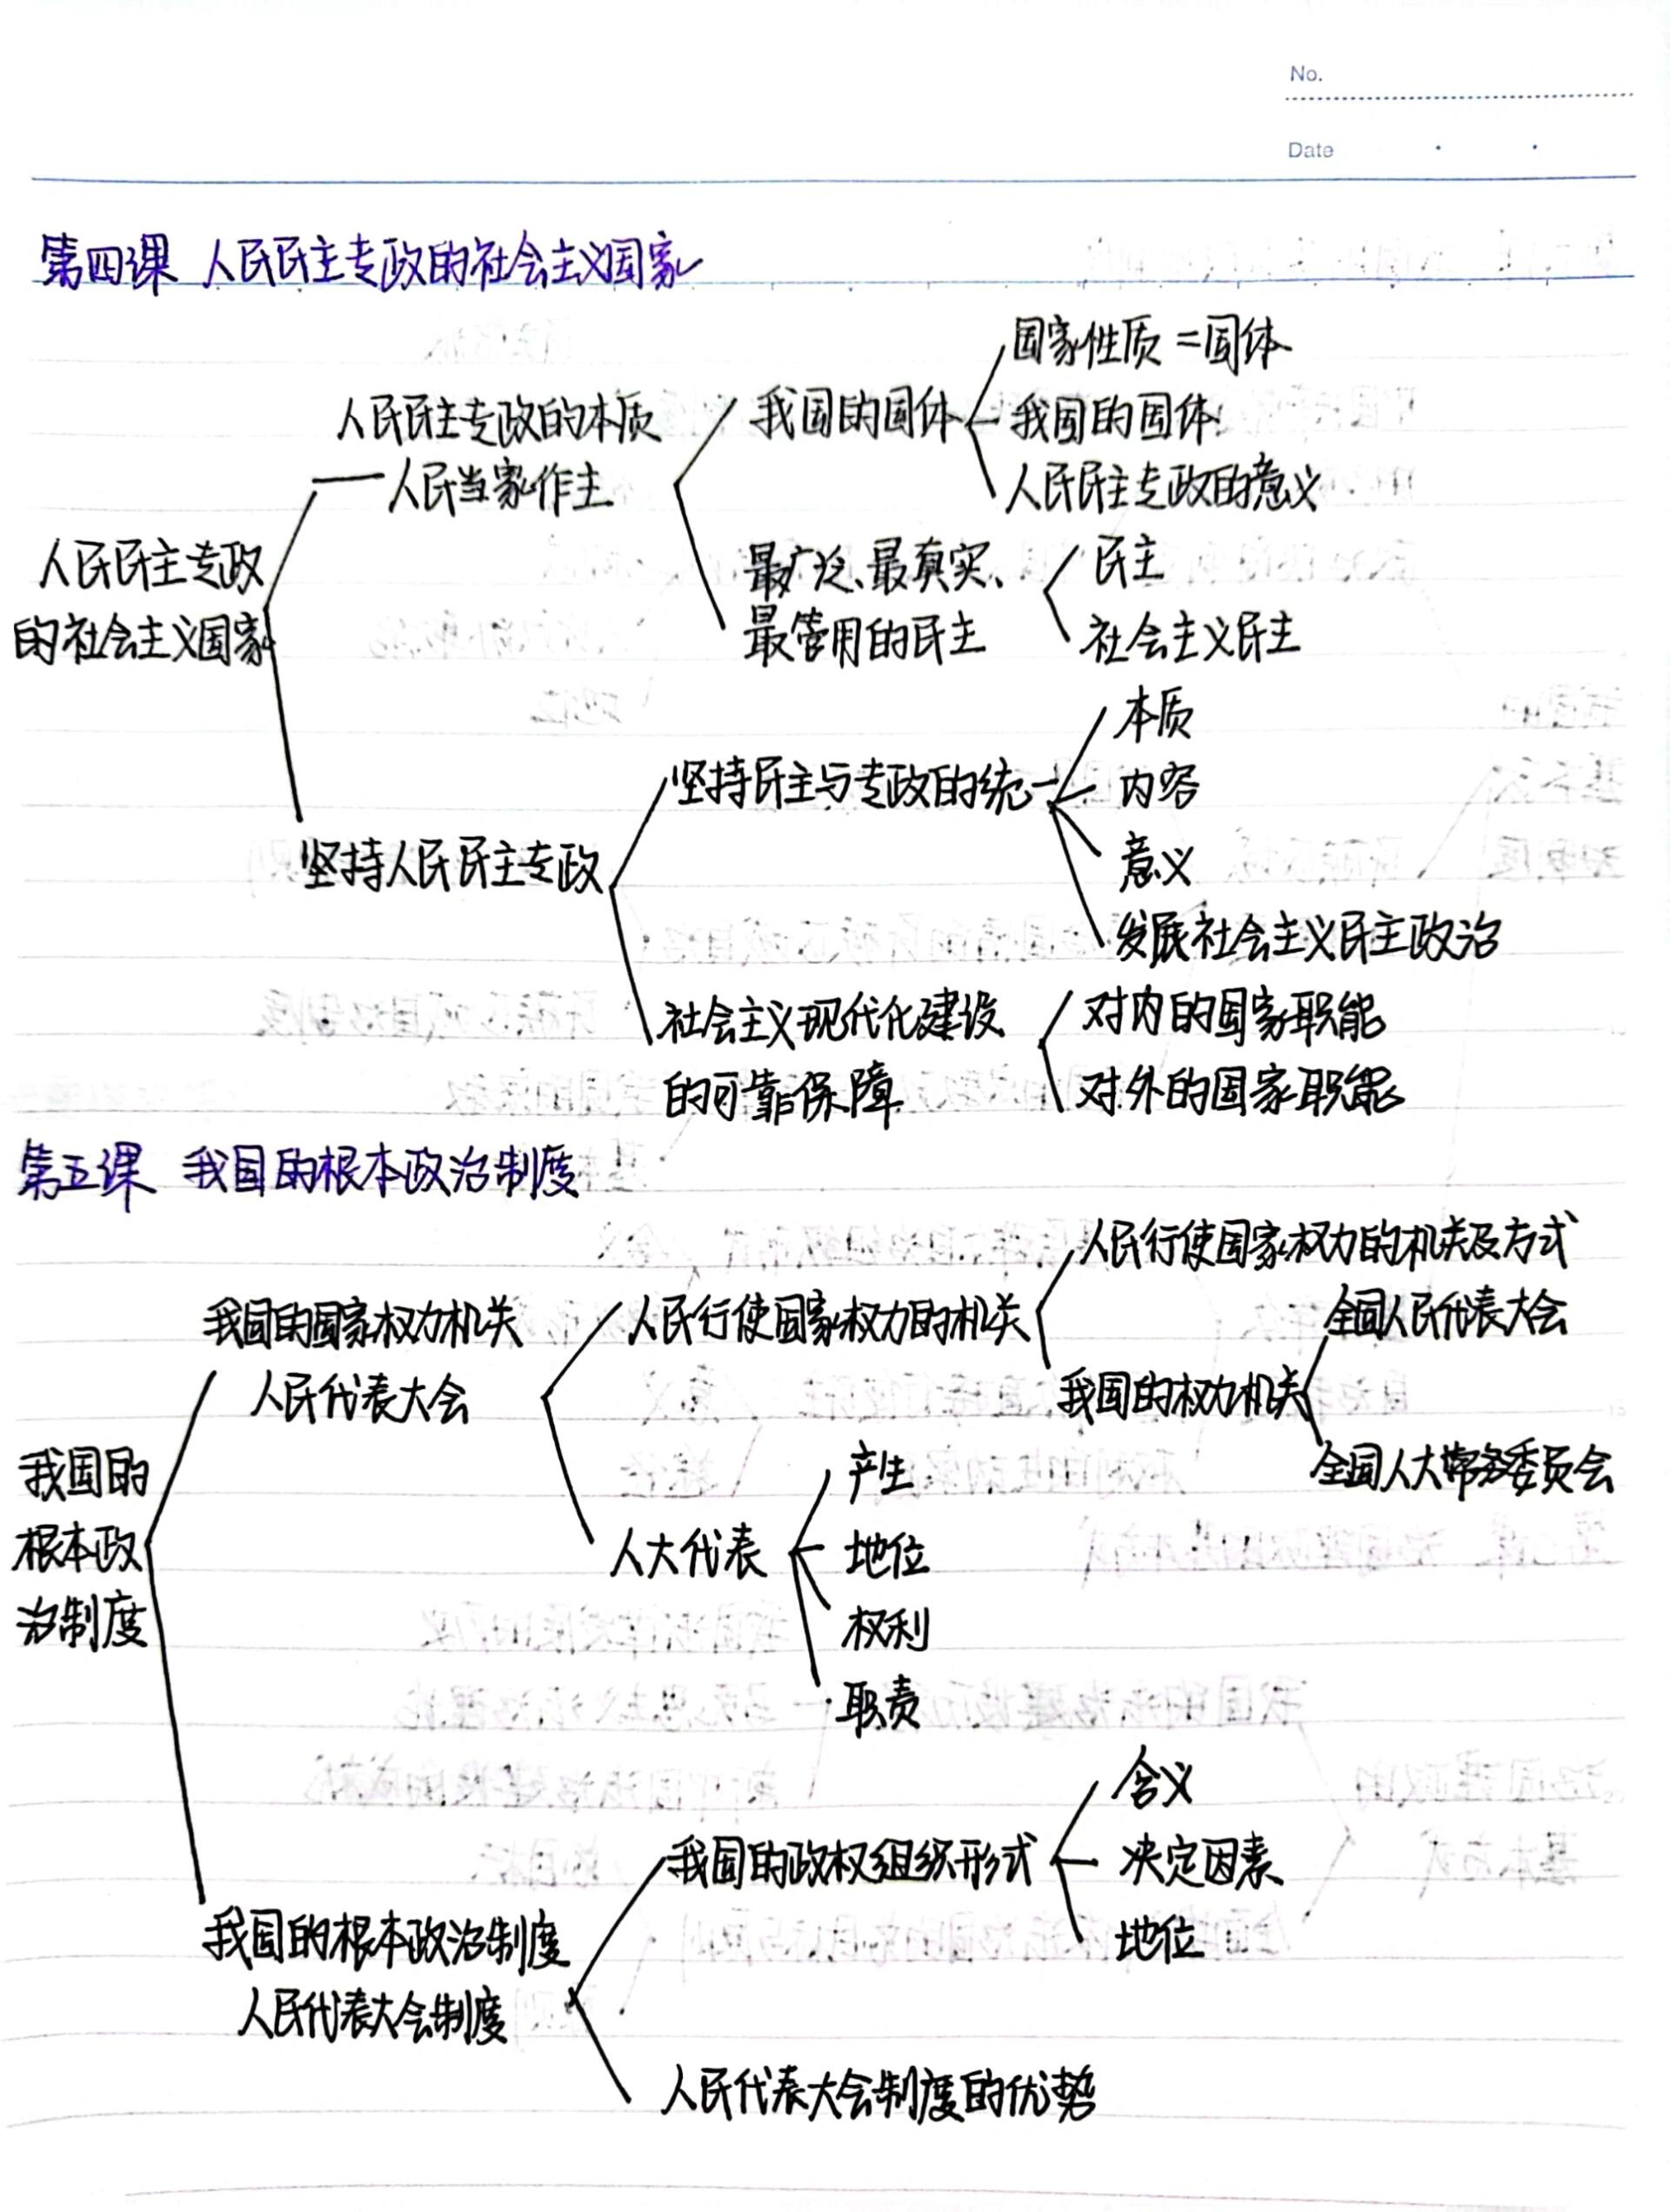 No.
Date
第四课 人民民主专政的社会主义国家
国家性质=国体
人民民主专政的本质
我国的国体
我国的国体
——人民当家作主
人民民主专政的意义
人民民主专政
的社会主义国家
最广泛、最真实、
最管用的民主
民主
社会主义民主
本质
坚持民主与专政的统一
内容
坚持人民民主专政
意义
发展社会主义民主政治
社会主义现代化建设
的可靠保障
对内的国家职能
对外的国家职能
第五课 我国的根本政治制度
人民行使国家权力的机关及方式
我国的国家权力机关
人民代表大会
人民行使国家权力的机关
全国人民代表大会
我国的权力机关
全国人大常务委员会
我国的
根本政
治制度
产生
人大代表
地位
权利
职责
含义
我国的政权组织形式
决定因素
地位
我国的根本政治制度
人民代表大会制度
人民代表大会制度的优势